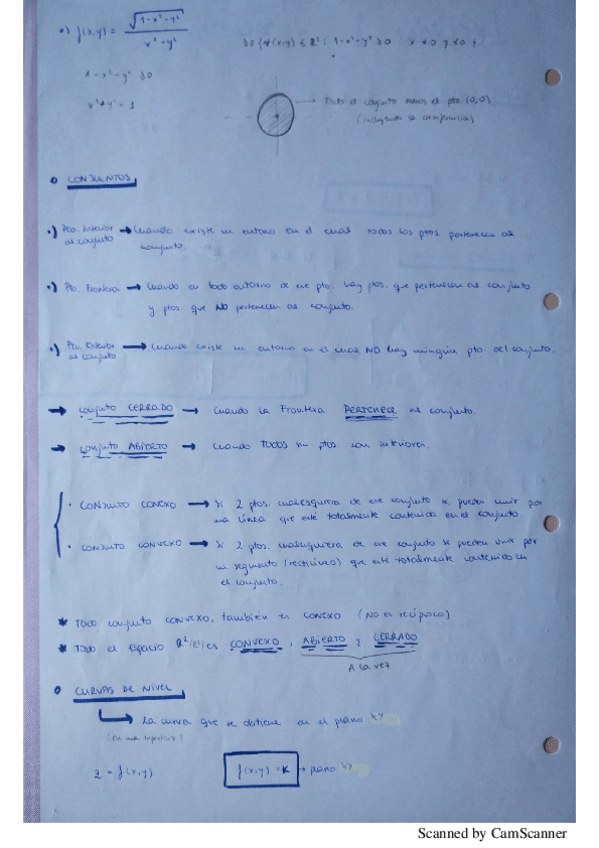 •) f(x,y) = √(1-x²-y²) / x²-y²
1-x²-y² ≥0
x²+y² = 1
Todo el conjunto menos el pto. (0,0)
(incluyendo la circunferencia)
CONJUNTOS
•) Pto. Interior al conjunto → Cuando existe un entorno en el cual todos los ptos. pertenecen al
conjunto.
•) Pto. Frontera → Cuando en todo entorno de ese pto. hay ptos. que pertenecen al conjunto
y ptos. que NO pertenecen al conjunto.
•) Pto. Exterior al conjunto → Cuando existe un entorno en el cual NO hay ningún pto. del conjunto.
→ Conjunto CERRADO → Cuando la Frontera PERTENECE al conjunto.
→ Conjunto ABIERTO → Cuando TODOS sus ptos son interiores.
• CONJUNTO CONEXO → Si 2 ptos. cualesquiera de ese conjunto se pueden unir por
una línea que esté totalmente contenida en el conjunto.
• CONJUNTO CONVEXO → Si 2 ptos. cualesquiera de ese conjunto se pueden unir por
un segmento (rectilíneo) que esté totalmente contenido en
el conjunto.
* Todo conjunto CONVEXO, también es CONEXO (No es recíproco)
* Todo el espacio R² es CONVEXO, ABIERTO y CERRADO
A la vez
CURVAS DE NIVEL
La curva que se obtiene en el plano XY
z = f(x,y) f(x,y) = K → plano XY
Scanned by CamScanner